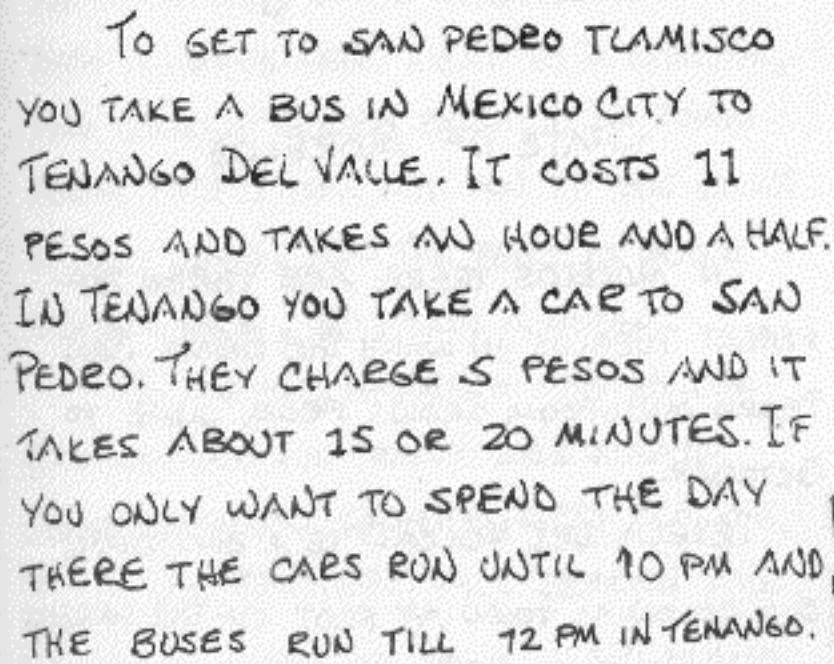 TO GET TO SAN PEDRO TLAMISCO
YOU TAKE A BUS IN MEXICO CITY TO
TENANGO DEL VALLE. IT COSTS 11
PESOS AND TAKES AN HOUR AND A HALF.
IN TENANGO YOU TAKE A CAR TO SAN
PEDRO. THEY CHARGE 5 PESOS AND IT
TAKES ABOUT 15 OR 20 MINUTES. IF
YOU ONLY WANT TO SPEND THE DAY
THERE THE CARS RUN UNTIL 10 PM AND
THE BUSES RUN TILL 12 PM IN TENANGO.